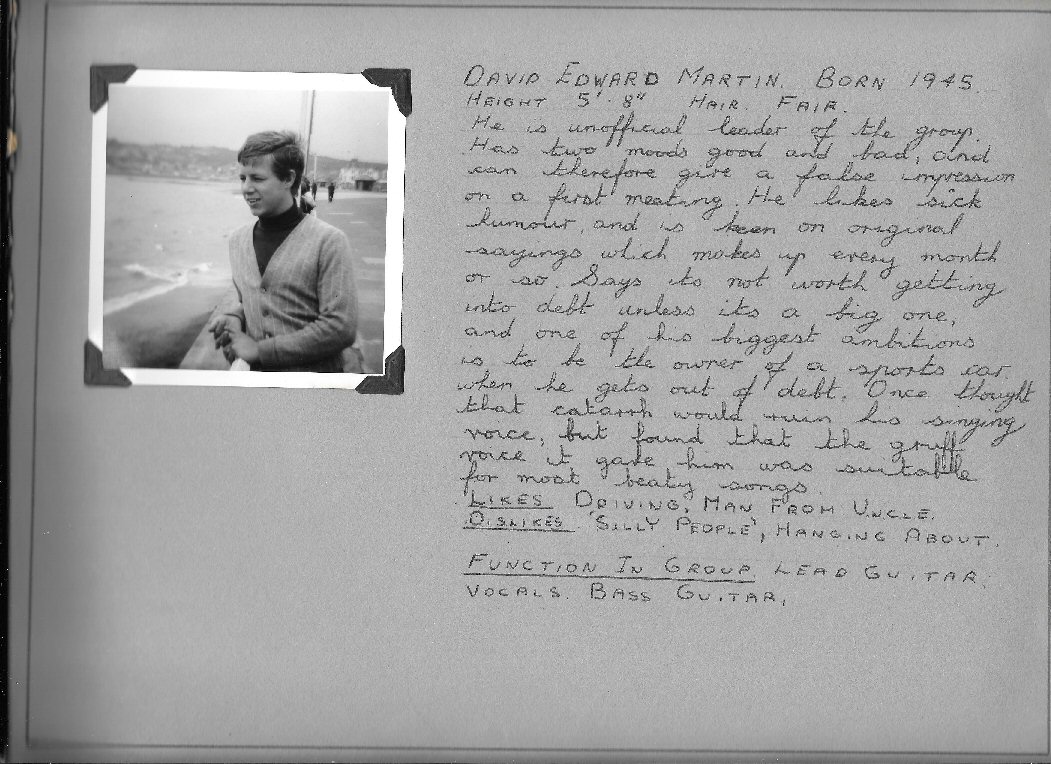 DAVID EDWARD MARTIN. BORN 1945.
HEIGHT 5'. 8" HAIR. FAIR.
He is unofficial leader of the group.
Has two moods good and bad, and
can therefore give a false impression
on a first meeting. He likes sick
humour, and is keen on original
sayings which makes up every month
or so. Says its not worth getting
into debt unless its a big one,
and one of his biggest ambitions
is to be the owner of a sports car
when he gets out of debt. Once thought
that catarrh would ruin his singing
voice, but found that the gruff
voice it gave him was suitable
for most beaty songs.
LIKES DRIVING, MAN FROM UNCLE.
DISLIKES 'SILLY PEOPLE', HANGING ABOUT.
FUNCTION IN GROUP LEAD GUITAR,
VOCALS. BASS GUITAR,